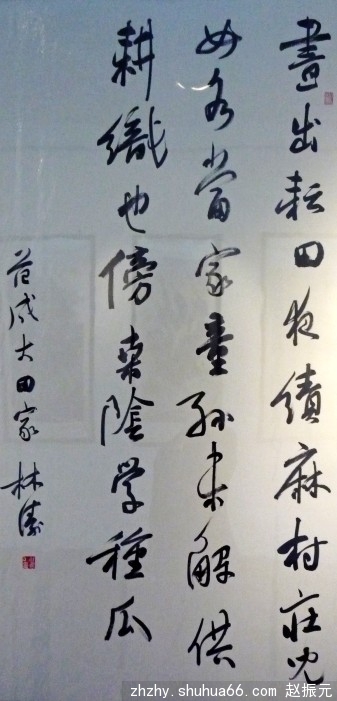 晝出耘田夜績麻村莊兒
女各當家童孫未解供
耕織也傍桑陰学種瓜
范成大田家 林濤
zhzhy.shuhua66.com 赵振元